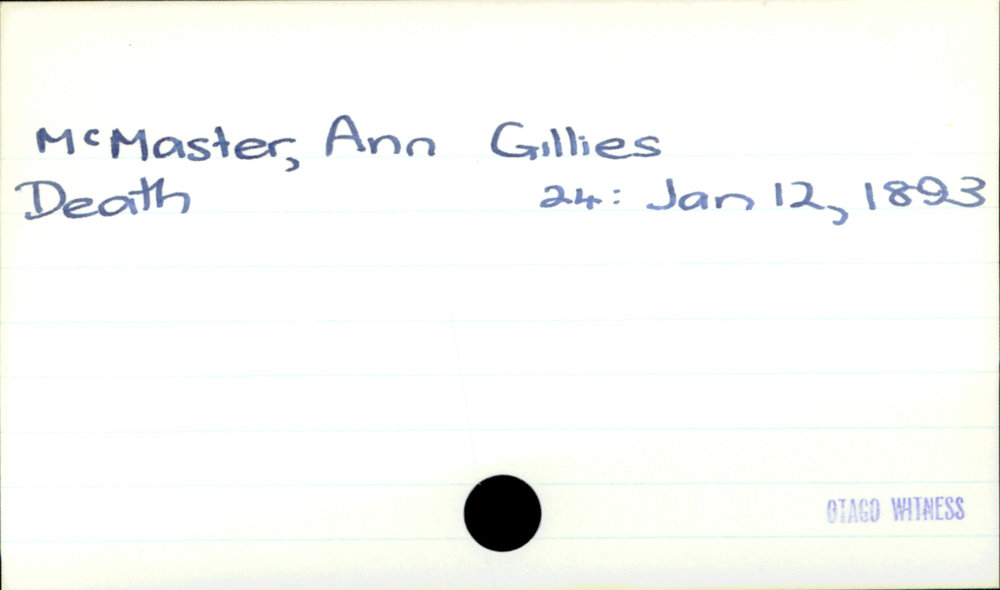 McMaster, Ann Gillies
Death 24: Jan 12, 1893
OTAGO WITNESS